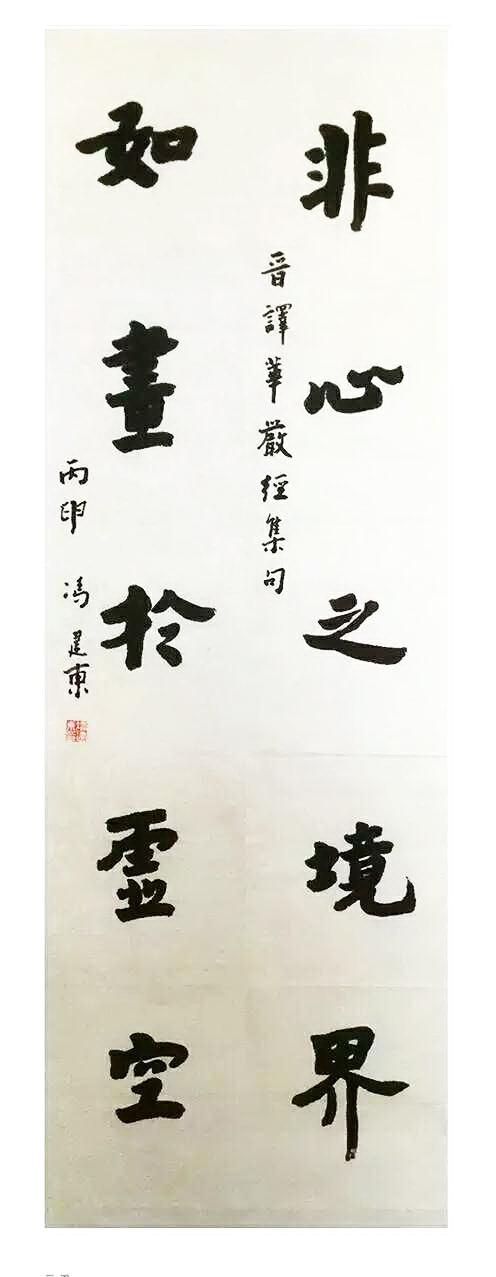 非心之境界
晋譯華嚴經集句
如畫於虛空
丙申 冯建東